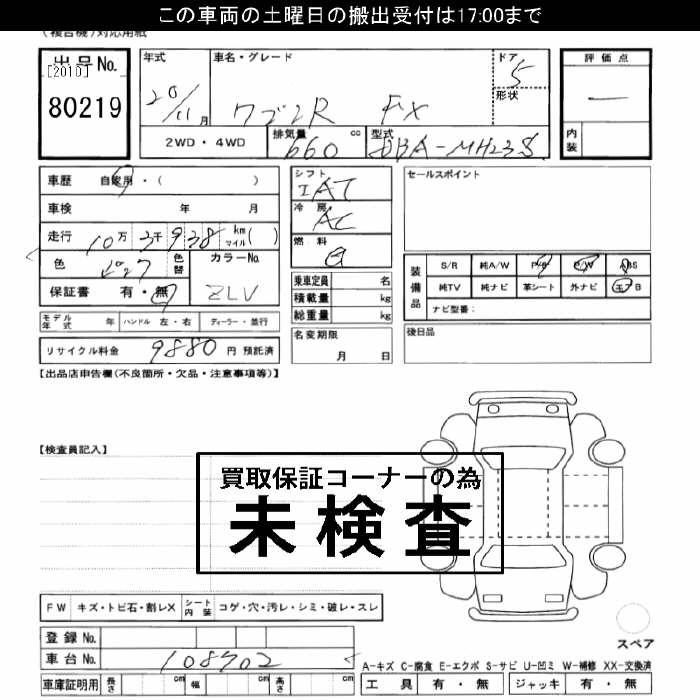 この車両の土曜日の搬出受付は17:00まで
(複合機)対応用紙
出品No. 年式 車名・グレード ドア 評価点
[2010] 20/11 月 ワゴンR FX 5 —
80219 形状 内装
2WD・4WD 排気量 660 cc 型式 DBA-MH23S
車歴 自家用・( ) シフト IAT セールスポイント
車検 年 月 冷房 AC
走行 10万3千938 km マイル ( ) 燃料 G
色 ピンク 色替 カラーNo. ZLV
保証書 有・無
装備品 S/R 純A/W P/S P/W ABS
純TV 純ナビ 革シート 外ナビ エアB
ナビ型番:
乗車定員 名
積載量 kg
総重量 kg
モデル年式 年 ハンドル 左・右 ディーラー・並行
名変期限 月 日
後日品
リサイクル料金 9880 円 預託済
【出品店申告欄(不良箇所・欠品・注意事項等)】
【検査員記入】
買取保証コーナーの為
未検査
FW キズ・トビ石・割レX シート内装 コゲ・穴・汚レ・シミ・破レ・スレ
登録No.
スペア
車台No. 108702
A-キズ C-腐食 E-エクボ S-サビ U-凹ミ W-補修 XX-交換済
車庫証明用 長さ cm 幅 cm 高さ cm 工具 有・無 ジャッキ 有・無